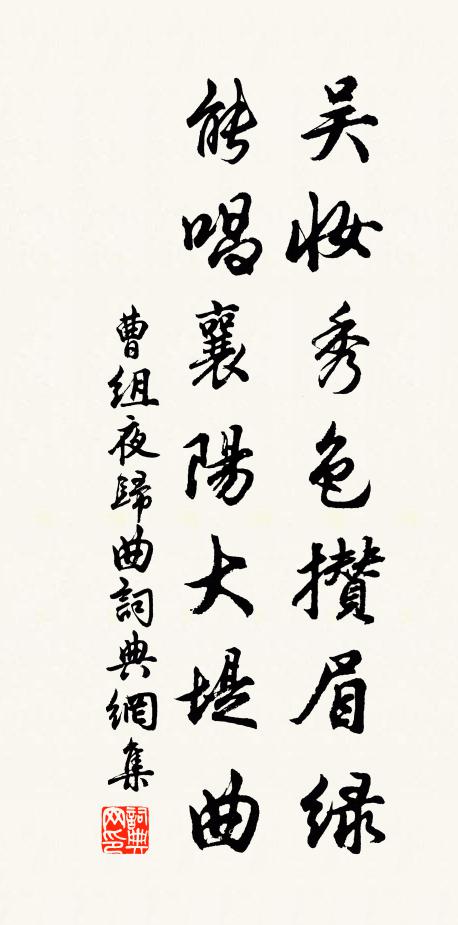 吴妆秀色攒眉绿
能唱襄陽大堤曲
曹组夜歸曲詞典網集
詞典网印